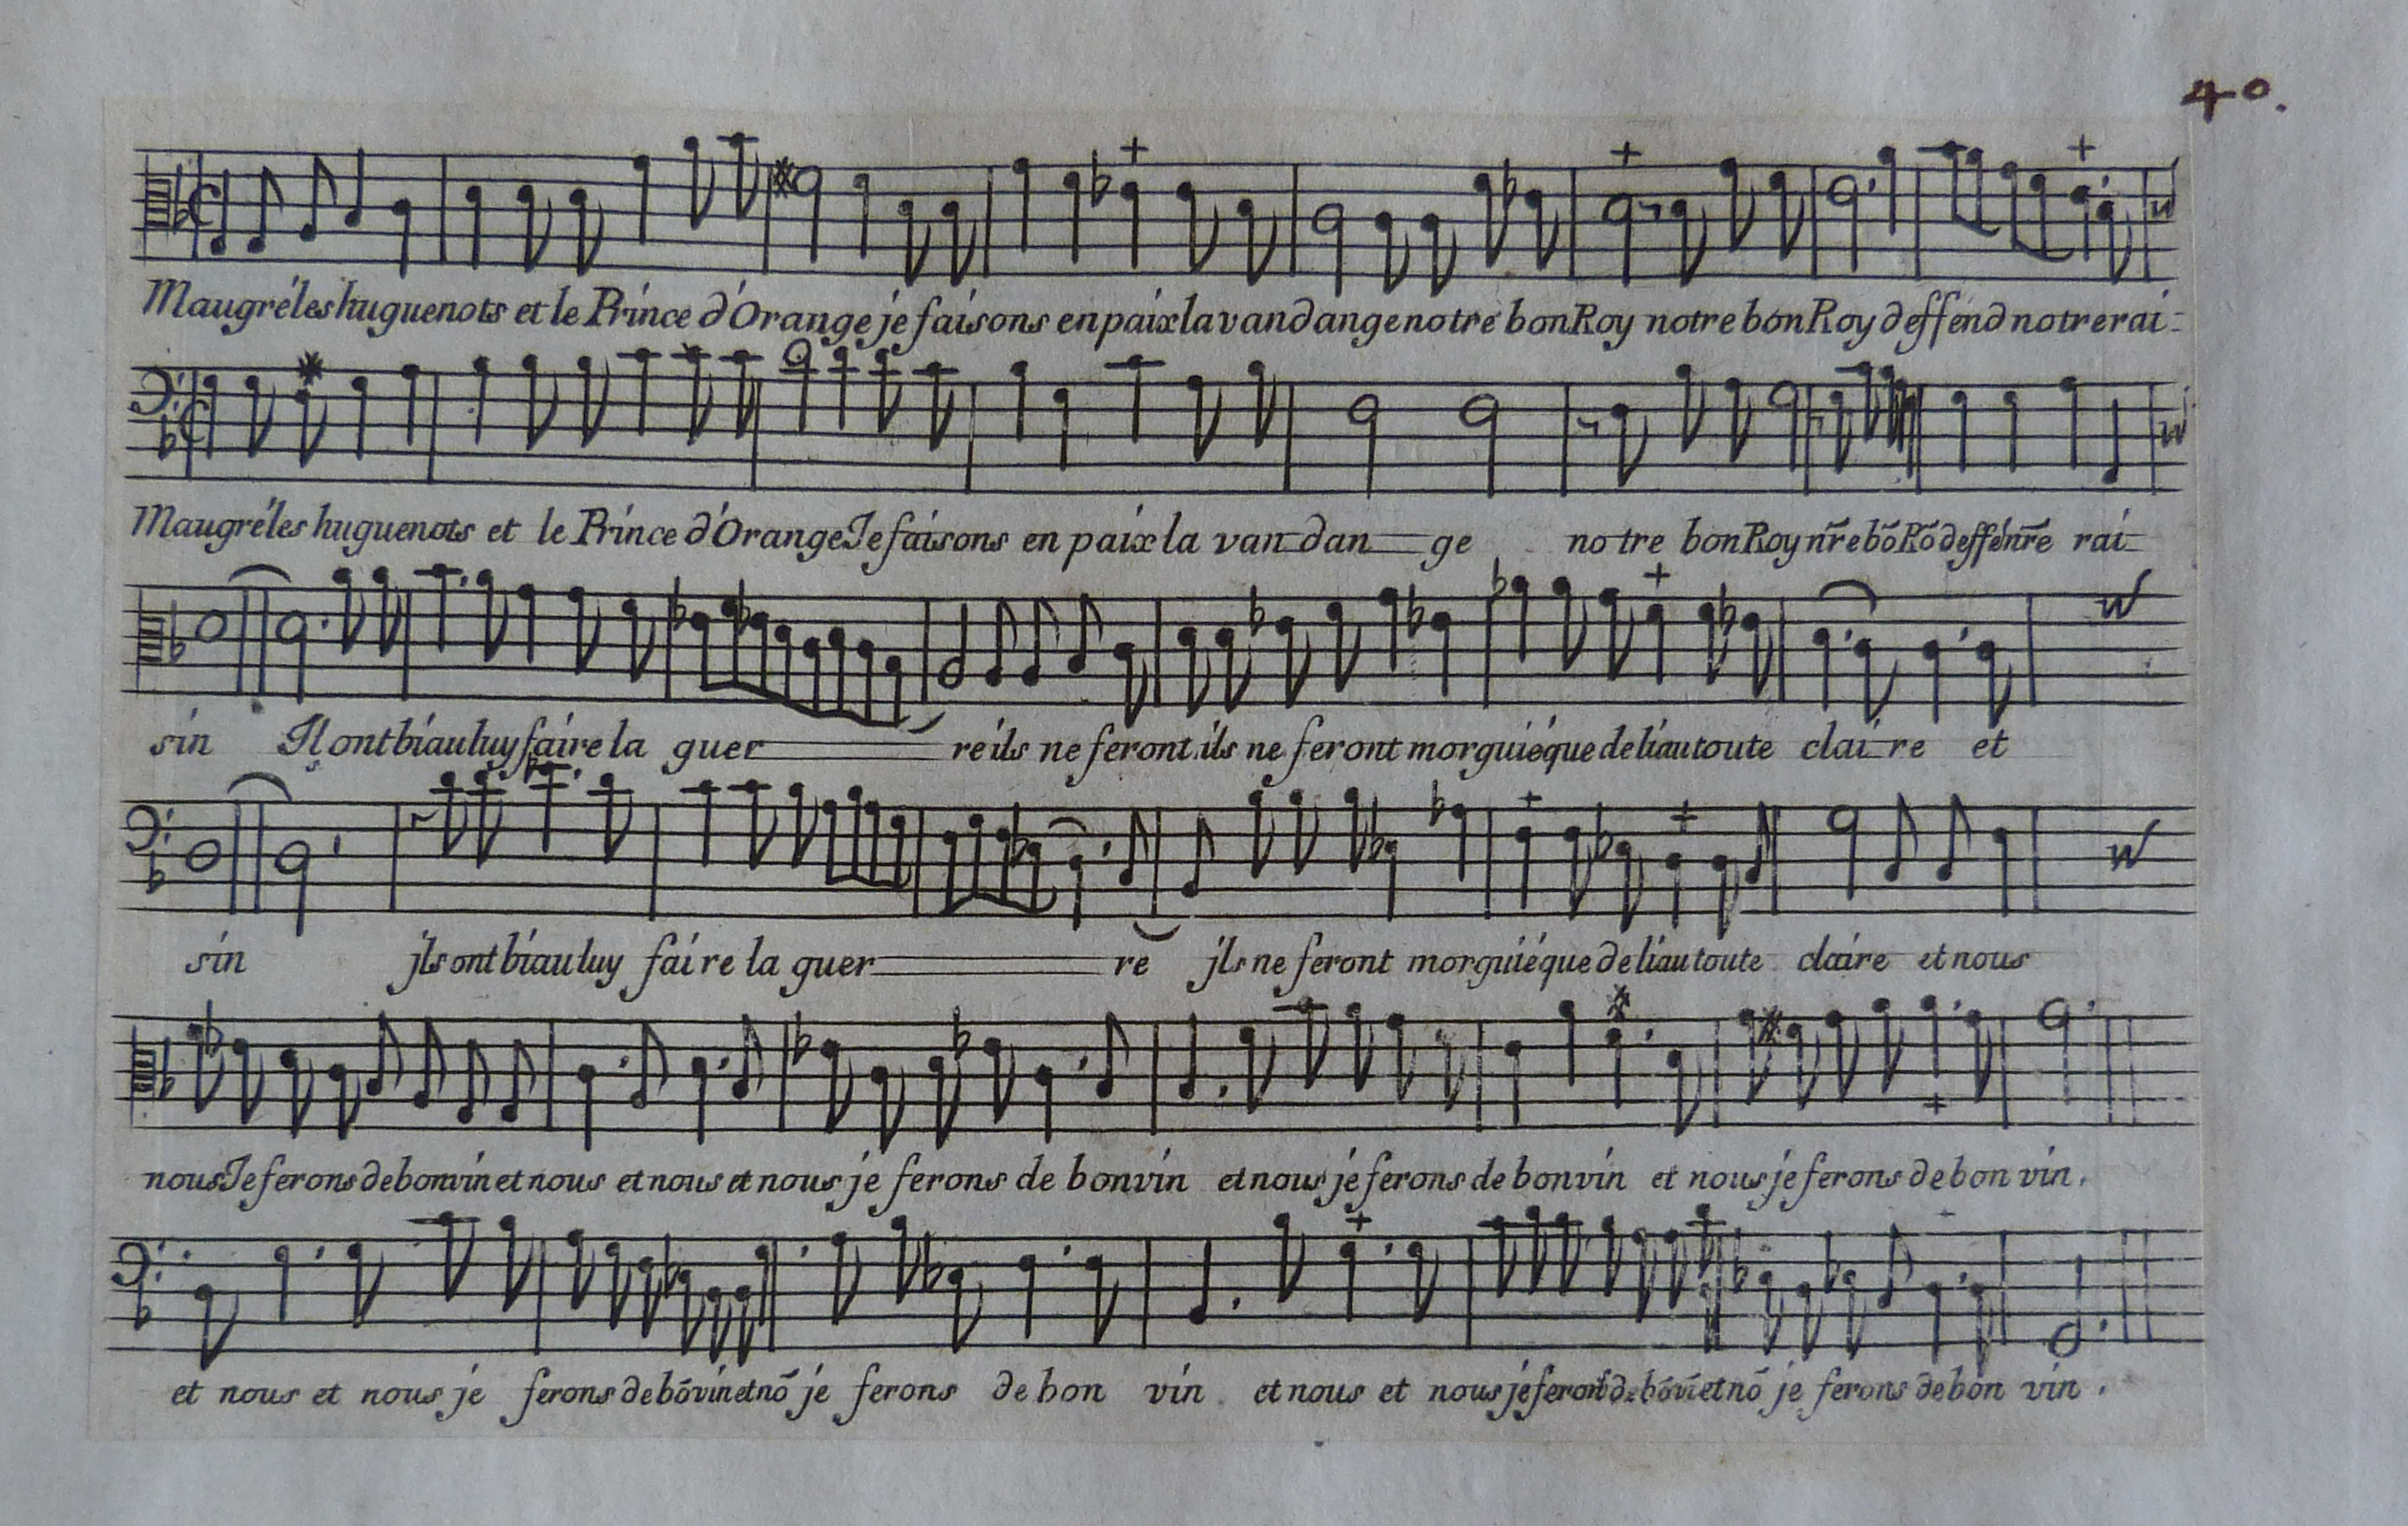 40.
Maugré les huguenots et le Prince d'Orange je faisons en paix la vandange notre bon Roy notre bon Roy deffend notre rai=
Maugré les huguenots et le Prince d'Orange Je faisons en paix la van dan ge no tre bon Roy nr̃e bõ Rõ deffẽ nr̃e rai
sin Il ont biau luy faire la guer re ils ne feront ils ne feront morguié que de liau toute clai re et
sin jls ont biau luy fai re la guer re jls ne feront morguié que de liau toute claire et nous
nous Je ferons de bon vin et nous et nous et nous je ferons de bon vin et nous je ferons de bon vin et nous je ferons de bon vin.
et nous et nous je ferons de bõ vin et nõ je ferons de bon vin et nous et nous je feront de bõ vĩ et nõ je ferons de bon vin.